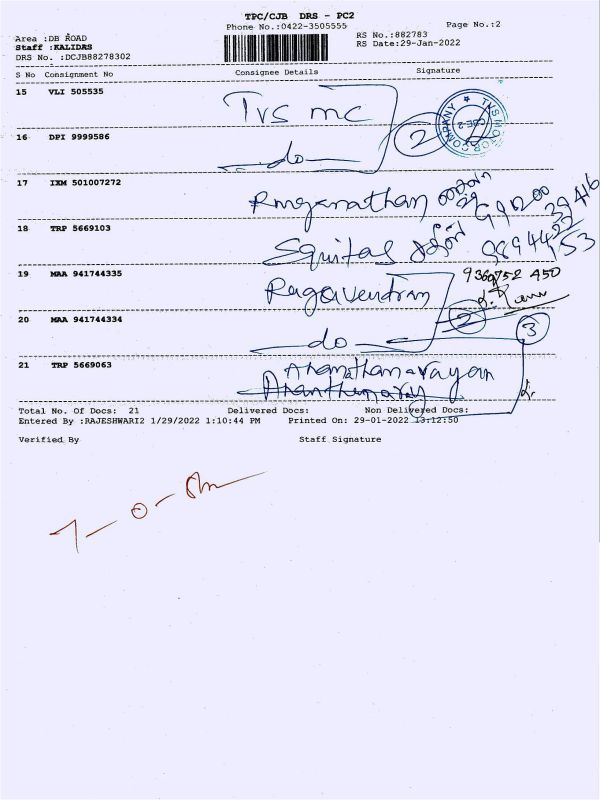 TPC/CJB DRS - PC2
Phone No.:0422-3505555
Page No.:2
Area :DB ROAD
RS No.:882783
Staff :KALIDAS
RS Date:29-Jan-2022
DRS No. :DCJB88278302
S No Consignment No Consignee Details Signature
15 VLI 505535
TVS mc
16 DPI 9999586
do
2
TVS MOTOR COMPANY
CBE-2
17 IXM 501007272
Ranganathan
18 TRP 5669103
Equitas
19 MAA 941744335
Ragavendran
9360752 450
20 MAA 941744334
do
2
3
21 TRP 5669063
Total No. Of Docs: 21 Delivered Docs: Non Delivered Docs:
Entered By :RAJESHWARI2 1/29/2022 1:10:44 PM Printed On: 29-01-2022 13:12:50
Verified By Staff Signature